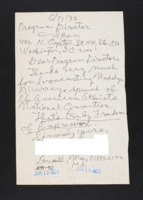 6/17/92
Program Director
C-Span
400 N. Capitol St. NW,
Washington, DC 20001
Dear Program Director,
Thanks very much
for broadcasting Madalyn
Murray's speech at
the American Atheists
National Convention
That's truly freedom
of Expression
Sincerely yours,
Lowell, Mass